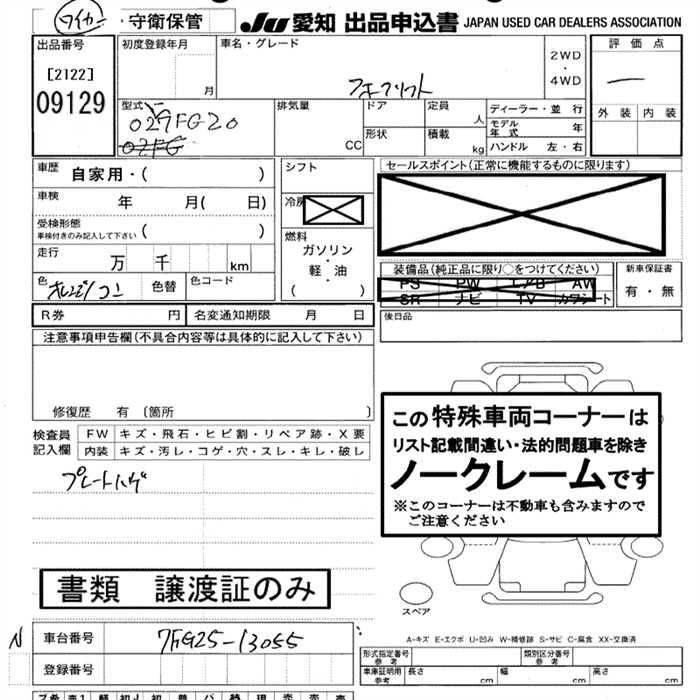 ワイカー ・守衛保管 JU 愛知 出品申込書 JAPAN USED CAR DEALERS ASSOCIATION
出品番号 初度登録年月 車名・グレード 2WD ・ 4WD 評価点
[2122]
09129
月 フォークリフト
外装 内装
型式 排気量 ドア 定員 ディーラー・並 行
029FG20 人 モデル年式 年
02FG CC 形状 積載 kg ハンドル 左・右
車歴 自家用・( ) シフト セールスポイント(正常に機能するものに限ります)
車検 年 月( 日) 冷房
受検形態 ( )
車検付きのみ記入して下さい
燃料
ガソリン
・
軽・油
( )
走行 万 千 km
装備品(純正品に限り○をつけてください) 新車保証書
PS PW エアB AW 有・無
SR ナビ TV カワシート
色 オレンジ 色替 色コード
後日品
R券 円 名変通知期限 月 日
注意事項申告欄(不具合内容等は具体的に記入して下さい)
修復歴 有 [箇所 ]
この特殊車両コーナーは
リスト記載間違い・法的問題車を除き
ノークレームです
※このコーナーは不動車も含みますので
ご注意ください
検査員記入欄 FW キズ・飛石・ヒビ割・リペア跡・X要
内装 キズ・汚レ・コゲ・穴・スレ・キレ・破レ
プレートハゲ
書類 譲渡証のみ
スペア
A-キズ E-エクボ U-凹み W-補修跡 S-サビ C-腐食 XX-交換済
N 車台番号 7FG25-13055
登録番号
形式指定番号 参考 類別区分番号 参考
車庫証明用 参考 長さ cm 幅 cm 高さ cm